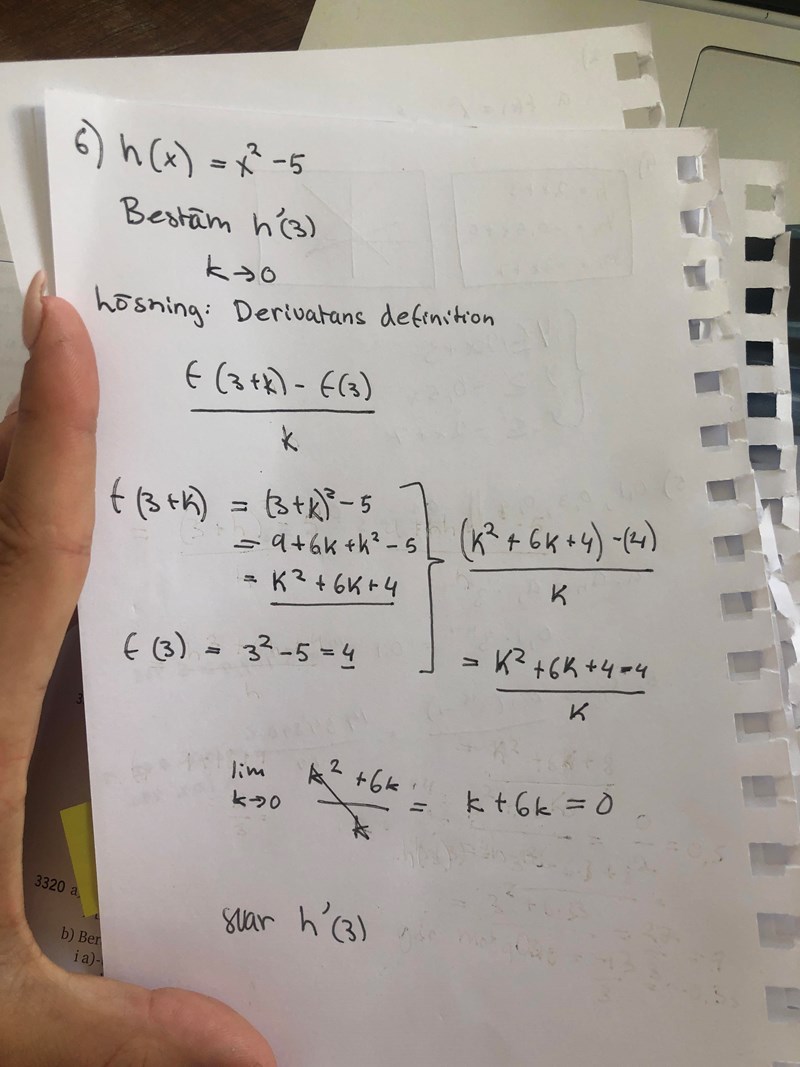 6) h(x) = x² - 5
Bestäm h'(3)
k→0
Lösning: Derivatans definition
f(3+k) - f(3)
k
f(3+k) = (3+k)² - 5
= 9 + 6k + k² - 5
= k² + 6k + 4
f(3) = 3² - 5 = 4
(k² + 6k + 4) - (4)
k
= k² + 6k + 4 - 4
k
lim k→0 k² + 6k = k + 6k = 0
k
svar h'(3)
3320 a
b) Ber
i a)-